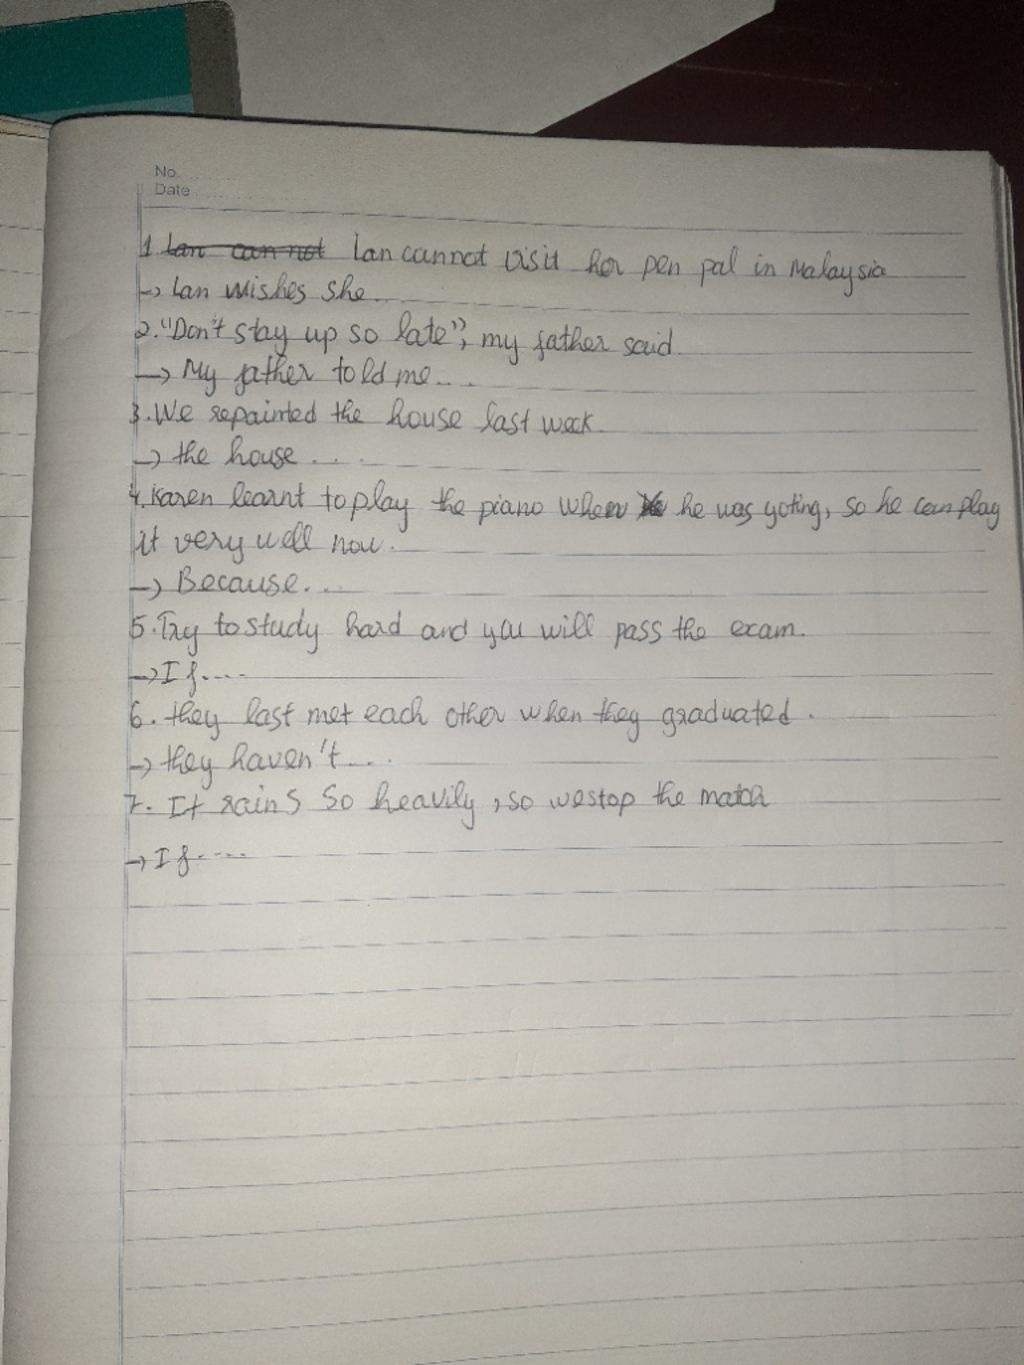 No.
Date
1. Lan can not Lan cannot visit her pen pal in Malaysia
-> Lan wishes she...
2. "Don't stay up so late", my father said.
-> My father told me...
3. We repainted the house last week.
-> the house....
4. Karen learnt to play the piano when he was young, so he can play
it very well now.
-> Because...
5. Try to study hard and you will pass the exam.
-> If....
6. they last met each other when they graduated.
-> they haven't....
7. It rains so heavily, so we stop the match
-> If.....